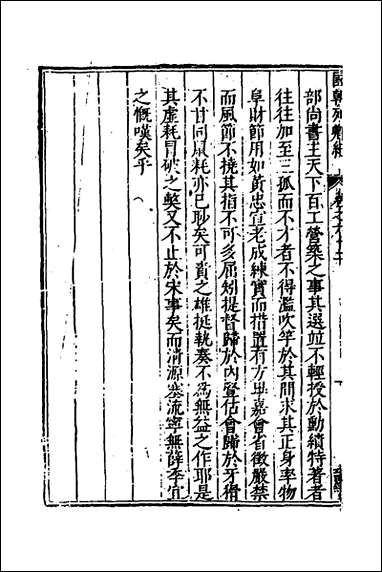 部尚書王天下百工營築之事其選並不輕授於動績特著者
往往加至三孤而不才者不得濫吹竽於其間求其正身率物
阜財節用如黃忠宣老成練實而措置有方毋嘉會省徵嚴禁
而風節不撓其指不可多屈矧提督歸於內監估會歸於牙稍
不甘同風耗亦已眇矣可貴之雄挺執奏不為無益之作耶是
其虛耗冒破之獘又不止於宋事矣而清源塞流寧無薛季宜
之慨嘆矣乎